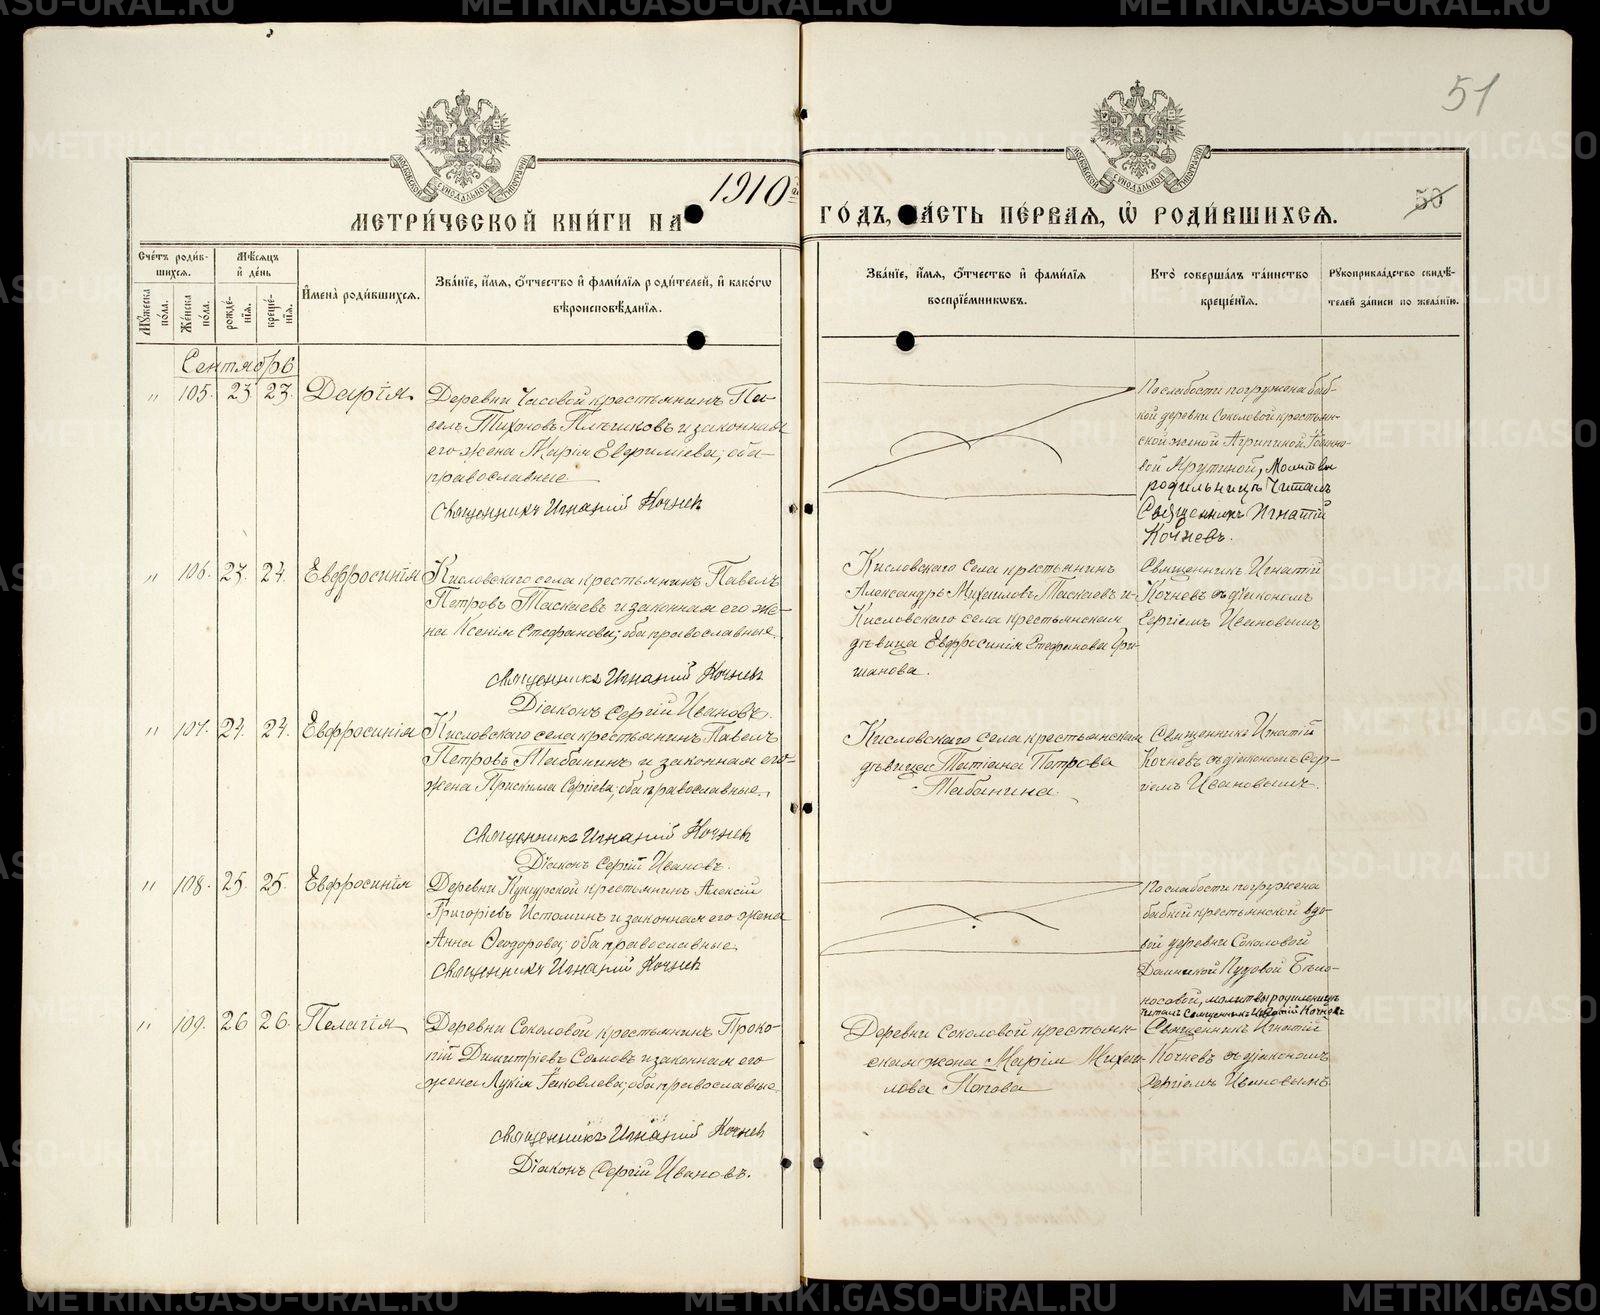 51
50
1910 го
МЕТРИ́ЧЕСКОЙ КНИ́ГИ НА
ГО́ДЪ, ЧА́СТЬ ПЕ́РВАЯ, Ѽ РОДИ́ВШИХСЯ.
Сче́тъ роди́в-
шихся.
Мꙋ́жеска по́ла.
Же́нска по́ла.
Мѣ́сяцъ
и҆ де́нь
рожде́-
нїя.
креще́-
нїя.
И҆мена̀ роди́вшихся.
Зва́нїе, и҆́мя, ѻ҆́тчество и҆ фами́лїя роди́телей, и҆ како́гѡ
вѣроисповѣ́данїя.
Зва́нїе, и҆́мя, ѻ҆́тчество и҆ фами́лїя
воспрїе́мникѡвъ.
Кто̀ соверша́лъ та́инство
креще́нїя.
Рꙋкоприкла́дство свидѣ́-
телей за́писи по жела́нїю.
Сентябрь
" 105. 23 23. Дарія.
Деревни Часовой крестьянинъ Па-
велъ Тихоновъ Плѣчиковъ и законная
его жена Марія Евфиміева; оба
православные
Священникъ Игнатій Кочневъ
По слабости погружена баб-
кой деревни Соколовой крестьян-
ской женой Агрипиной Іоанно-
вой Крутиной, молитвы
родильницѣ читалъ
Священникъ Игнатій
Кочневъ.
" 106. 23. 24. Евфросинія
Кисловскаго села крестьянинъ Павелъ
Петровъ Таскаевъ и законная его же-
на Ксенія Стефанова; оба православные.
Священникъ Игнатій Кочневъ
Діаконъ Сергій Ивановъ.
Кисловскаго села крестьянинъ
Александръ Михаиловъ Таскаевъ и
Кисловскаго села крестьянская
дѣвица Евфросинія Стефанова Гри-
шанова.
Священникъ Игнатій
Кочневъ съ діакономъ
Сергіемъ Ивановымъ
" 107. 24. 24. Евфросинія
Кисловскаго села крестьянинъ Павелъ
Петровъ Табанинъ и законная его
жена Прискила Сергіева; оба православные.
Священникъ Игнатій Кочневъ
Діаконъ Сергій Ивановъ.
Кисловскаго села крестьянская
дѣвица Татіана Петрова
Табанина.
Священникъ Игнатій
Кочневъ съ діакономъ Сер-
гіемъ Ивановымъ.
" 108. 25. 25. Евфросинія
Деревни Кунгурской крестьянинъ Алексій
Григоріевъ Истоминъ и законная его жена
Анна Ѳеодорова; оба православные.
Священникъ Игнатій Кочневъ
По слабости погружена
бабкой крестьянской вдо-
вой деревни Соколовой
Домникой Пудовой Бѣло-
носовой, молитвы родильницѣ
читалъ Священникъ Игнатій Кочневъ
" 109. 26 26. Пелагія
Деревни Соколовой крестьянинъ Проко-
пій Димитріевъ Сомовъ и законная его
жена Лукія Іаковлева; оба православные
Священникъ Игнатій Кочневъ
Діаконъ Сергій Ивановъ.
Деревни Соколовой крестьян-
ская жена Марія Михаи-
лова Попова
Священникъ Игнатій
Кочневъ съ діакономъ
Сергіемъ Ивановымъ
METRIKI.GASO-URAL.RU